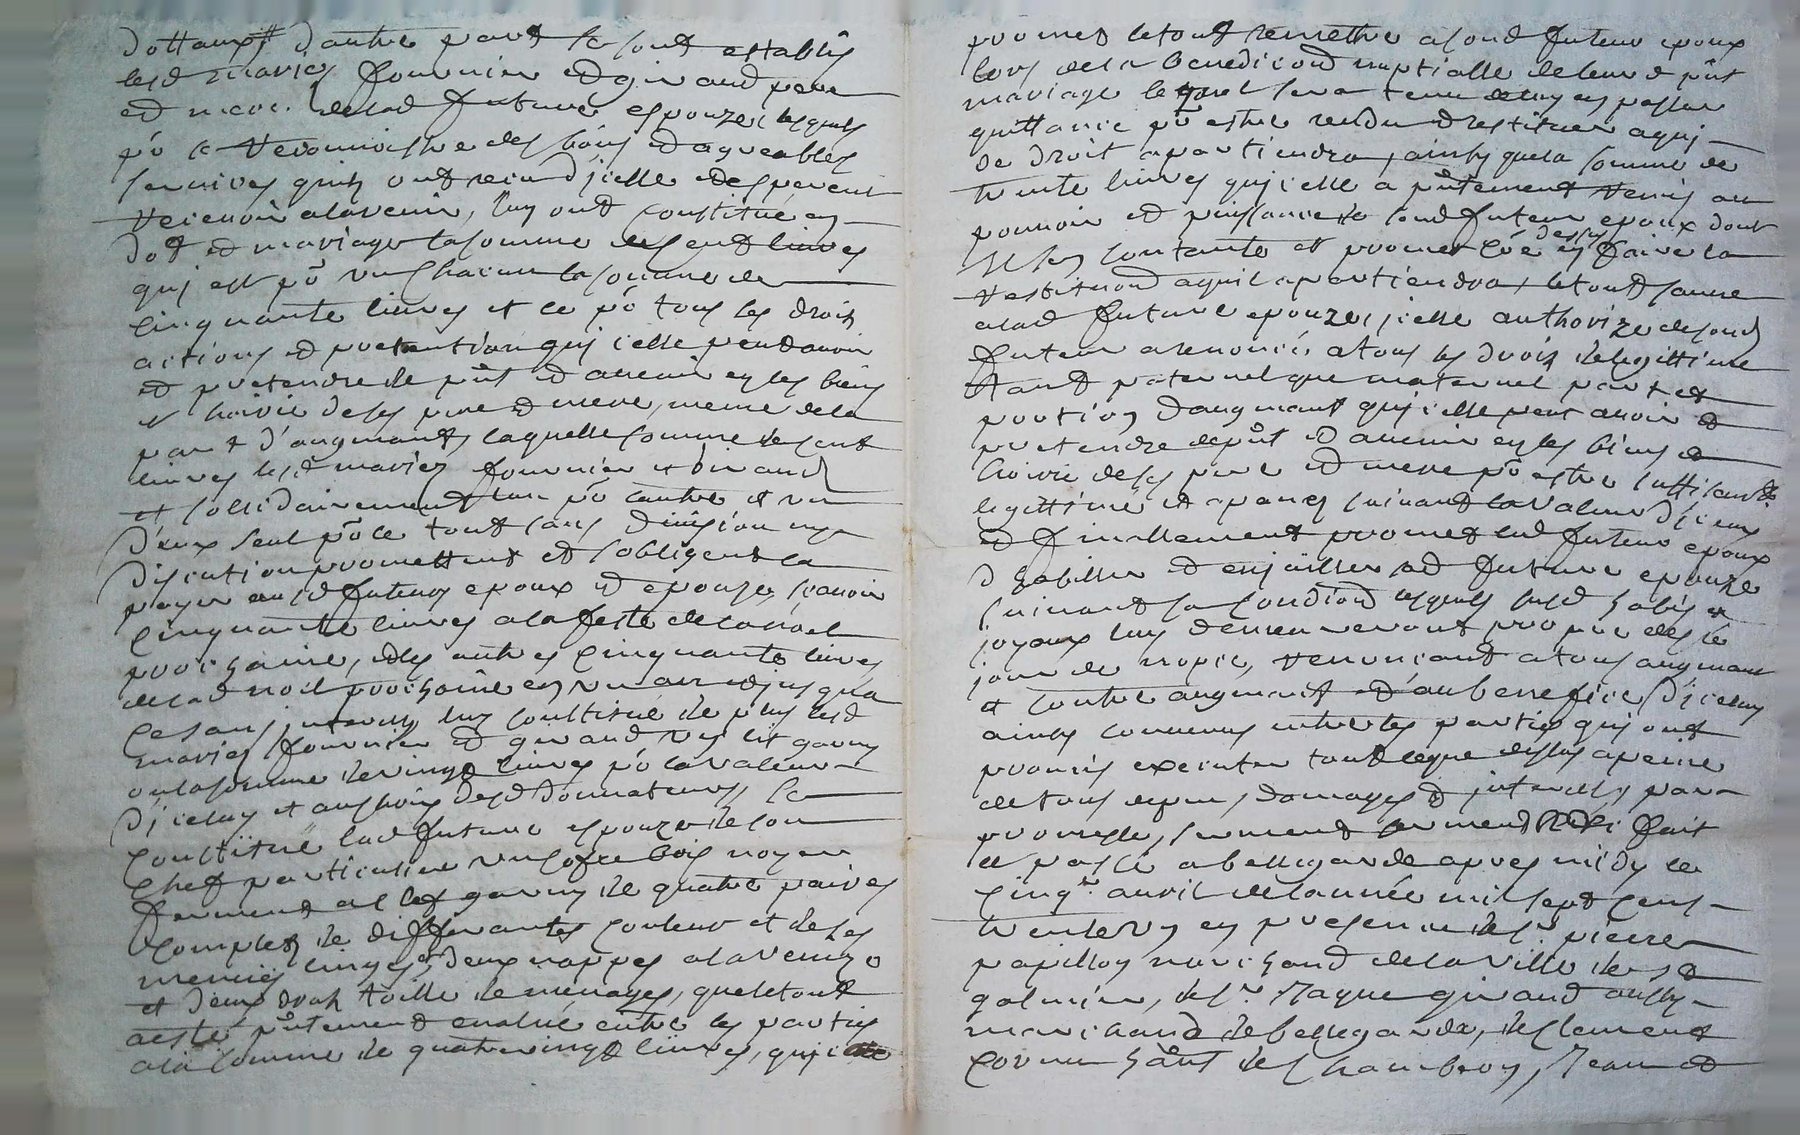 dottaux# d'autre part se sont establis
lesd mariez fournier et giraud pere
et mere de lad future espouze, lesquels
po la reconnoissance des bons et agreables
services quils ont receu d'icelle et esperent
recevoir a lavenir, luy ont constitué en
dot et mariage la somme de cent livres
qui est po un chacun la somme de
cinquante livres et ce po tous les droits
actions et pretention qui icelle peut avoir
et pretendre de pnt et avenir en les biens
et hoirie de ses pere et mere, meme de la
part d'augmant, laquelle somme de cent
livres lesd mariez fournier et giraud
et sollidairement lun po lautre et un
d'eux seul po le tout sans division ny
discution promettent et sobligent la
payer ausd futeurs epoux et epouze, scavoir
cinquante livres a la feste de la noel
prochaine, et les autres cinquante livres
de lad noel prochaine en un an et jusqua
ce sans interest, luy constitue de plus lesd
mariez fournier et giraud un lit garny
ou la somme de vingt livres po la valeur
d'iceluy et au choix desd donnateurs, se
constitue lad future espouze de son
chef particulier un cofre bois noyer
fermant a clef garny de quatre paires
complet de differantes couleur et de ses
menus linges, deux nappes a la venize
et deux draps toille de menages, que le tout
a esté pntement evalué entre les parties
a la somme de quatre vingt livres, qui icelle
promet le tout remettre a sond futeur epoux
lors de la benediction nuptialle de leur d pnt
mariage lequel sera tenu de luy en passer
quittance po estre rendu et restituer a qui
de droit apartiendra, ainsy que la somme de
trente livres qu'icelle a pntement remis au
pouvoir et puissance de sond futeur epoux dont
il sen contante et promet co̅e dessus en faire la
restitution a qui il apartiendra, le tout sauve
a lad future epouze, icelle authorizé de sond
futeur a renoncé, a tous les droits de legittime
tant paternel que maternel part et
portion d'augmant qu'icelle peut avoir et
pretendre de pnt et avenir en les biens et
hoirie de ses pere et mere po estre suffisant
legittimé et apanez suivant la valeur d'iceux
et finallement promet led futeur epoux
d'habiller et enjoailler lad future epouze
suivant sa condition lesquels susd habis et
joyaux luy demeureront propre des le
jour de nopce, renonciant a tous augmant
et contre augment et au benefice d'iceluy
ainsy convenu entre les parties qui ont
promis executer tout ce que dessus a peine
de tous depens, domages et interests, par
promesse, serment fait
et passé a bellegarde apres midy le
cinqe. avril de lannée mil sept cens
trente un en presence de sr pierre
papillon marchand de la ville de st
galmier, de sr. giraud aussy
marchand de bellegarde, de clement
cornu hant de chambron, Jean et